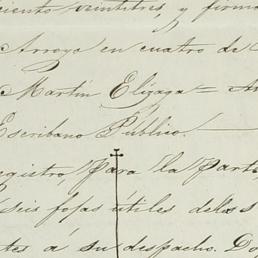 ciento veintitres, y firma
Arroyo en cuatro de
Martin Elizaga =
Escribano Público.
registro, para la parte
seis fojas útiles de los
tes á su despacho. Do